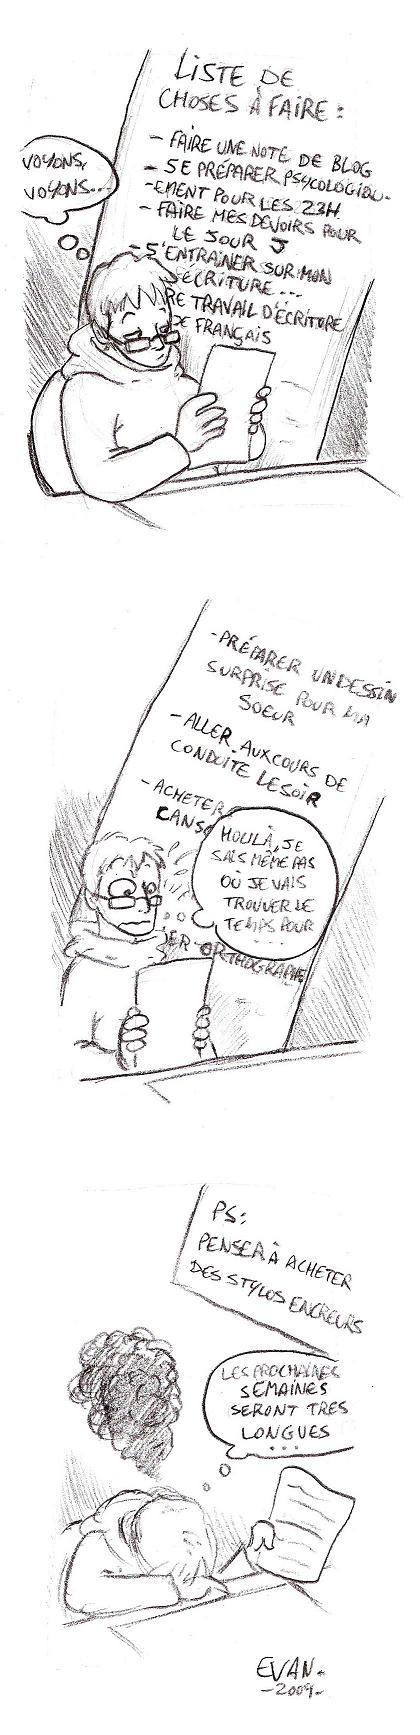 LISTE DE
CHOSES À FAIRE :
- FAIRE UNE NOTE DE BLOG
- SE PRÉPARER PSYCOLOGIQU-
-EMENT POUR LES 23H
- FAIRE MES DEVOIRS POUR
LE JOUR J
- S'ENTRAINER SUR MON
ÉCRITURE...
RE TRAVAIL D'ÉCRITURE
DE FRANÇAIS
VOYONS,
VOYONS...
- PRÉPARER UN DESSIN
SURPRISE POUR MA
SOEUR
- ALLER AUX COURS DE
CONDUITE LE SOIR
- ACHETER
CANSO
HOULÀ, JE
SAIS MÊME PAS
OÙ JE VAIS
TROUVER LE
TEMPS POUR
...
ER ORTHOGRAPHE
PS:
PENSER À ACHETER
DES STYLOS ENCREURS
LES PROCHAINES
SEMAINES
SERONT TRES
LONGUES
...
EVAN-
-2009-